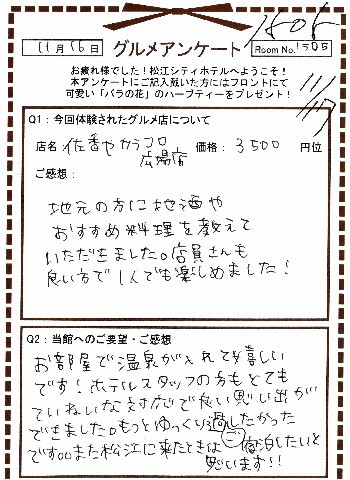 1505
11月16日 グルメアンケート Room No. 1505
お疲れ様でした！松江シティホテルへようこそ！
本アンケートにご記入戴いた方にはフロントにて
可愛い「バラの花」のハーブティーをプレゼント！
11/17
Q1：今回体験されたグルメ店について
店名 佐香やカラコロ広場店 価格： 3500 円位
ご感想：
地元の方に地酒や
おすすめ料理を教えて
いただきました。店員さんも
良い方で1人でも楽しめました！
Q2：当館へのご要望・ご感想
お部屋で温泉が入れて嬉しい
です！ホテルスタッフの方もとても
ていねいな対応で良い思い出が
できました。もっとゆっくり過したかった
です。また松江に来たときは 宿泊したいと
思います!!